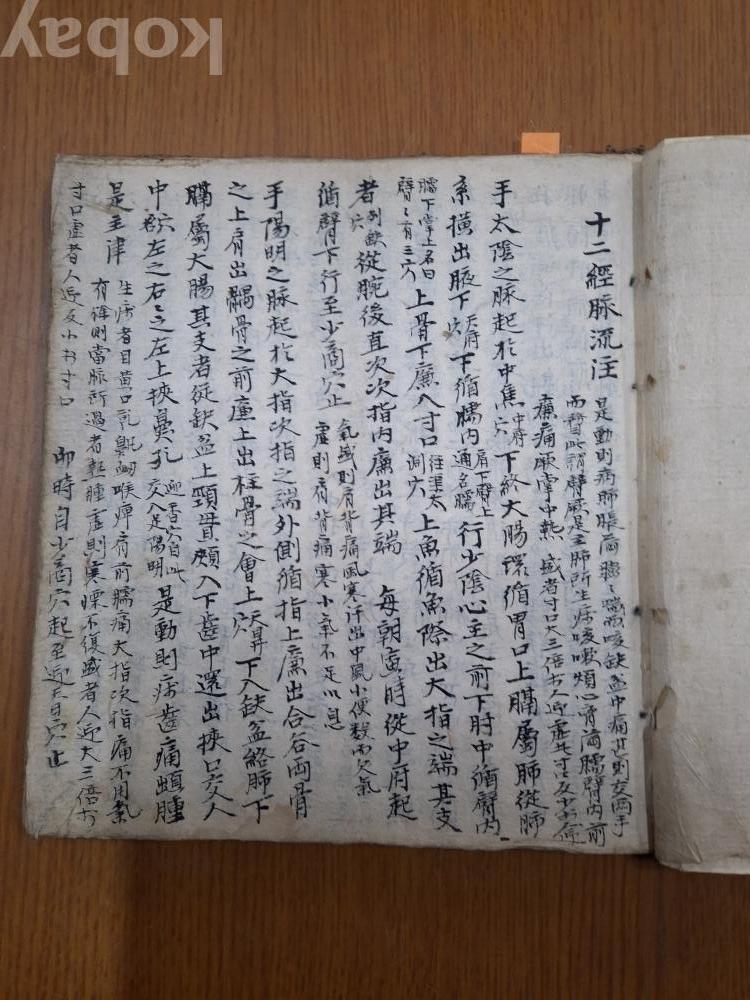 十二經脈流注
是動則病肺脹滿膨〻喘咳缺盆中痛甚則交兩手
而瞀此謂臂厥是主肺所生病咳嗽煩心胷滿臑臂內前
廉痛厥掌中熱 盛者寸口大三倍於人迎虛者寸口反小於
手太陰之脈起於中焦中府穴下絡大腸環循胃口上膈屬肺從肺
系橫出腋下天府穴下循臑內肩下臂上通名臑行少陰心主之前下肘中循臂內
臑下掌上名曰臂〻有三穴上骨下廉入寸口太上魚循魚際出大指之端其支
者列缺穴從腕後直次次指內廉出其端 每朝寅時從中府起
循臂下行至少商穴止 氣盛則肩背痛風寒汗出中風小便數而欠氣
虛則肩背痛寒小氣不足以息
手陽明之脈起於大指次指之端外側循指上廉出合谷兩骨
之上肩出髃骨之前廉上出柱骨之會上天鼎穴下入缺盆絡肺下
膈屬大腸其支者從缺盆上頸貫頰入下齒中還出挾口交人
中穴左之右〻之左上挾鼻孔迎香穴自此交入足陽明是動則病齒痛䪼腫
是主津 生病者目黃口乾鼽衂喉痺肩前臑痛大指次指痛不用氣
有餘則當脈所過者熱腫虛則寒慄不復盛者人迎大三倍於
寸口虛者人迎反小於寸口 卯時自少商穴起至迎香穴止
kobay